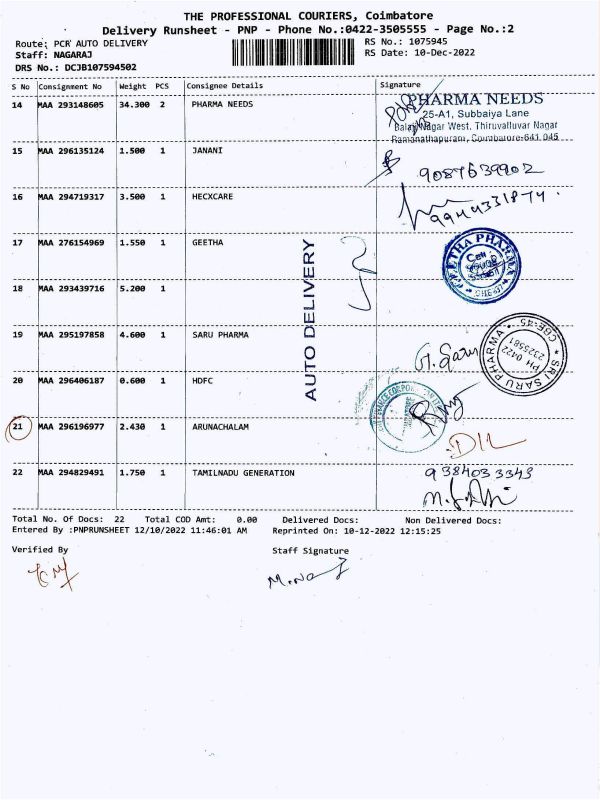 THE PROFESSIONAL COURIERS, Coimbatore
Delivery Runsheet - PNP - Phone No.:0422-3505555 - Page No.:2
Route: PCR AUTO DELIVERY RS No.: 1075945
Staff: NAGARAJ RS Date: 10-Dec-2022
DRS No.: DCJB107594502
S No Consignment No Weight PCS Consignee Details Signature
14 MAA 293148605 34.300 2 PHARMA NEEDS
PHARMA NEEDS
25-A1, Subbaiya Lane
Balaji Nagar West, Thiruvalluvar Nagar
Ramanathapuram, Coimbatore-641 045
15 MAA 296135124 1.500 1 JANANI
9087639902
16 MAA 294719317 3.500 1 HECXCARE
9944331874
17 MAA 276154969 1.550 1 GEETHA
GEETHA PHARMA
Cell
CHE-37
AUTO DELIVERY
18 MAA 293439716 5.200 1
19 MAA 295197858 4.600 1 SARU PHARMA
G. Saru
SRI SARU PHARMA
CBE-45
PH 0422
2325581
20 MAA 296406187 0.600 1 HDFC
21 MAA 296196977 2.430 1 ARUNACHALAM
22 MAA 294829491 1.750 1 TAMILNADU GENERATION
9384033343
Total No. Of Docs: 22 Total COD Amt: 0.00 Delivered Docs: Non Delivered Docs:
Entered By :PNPRUNSHEET 12/10/2022 11:46:01 AM Reprinted On: 10-12-2022 12:15:25
Verified By Staff Signature